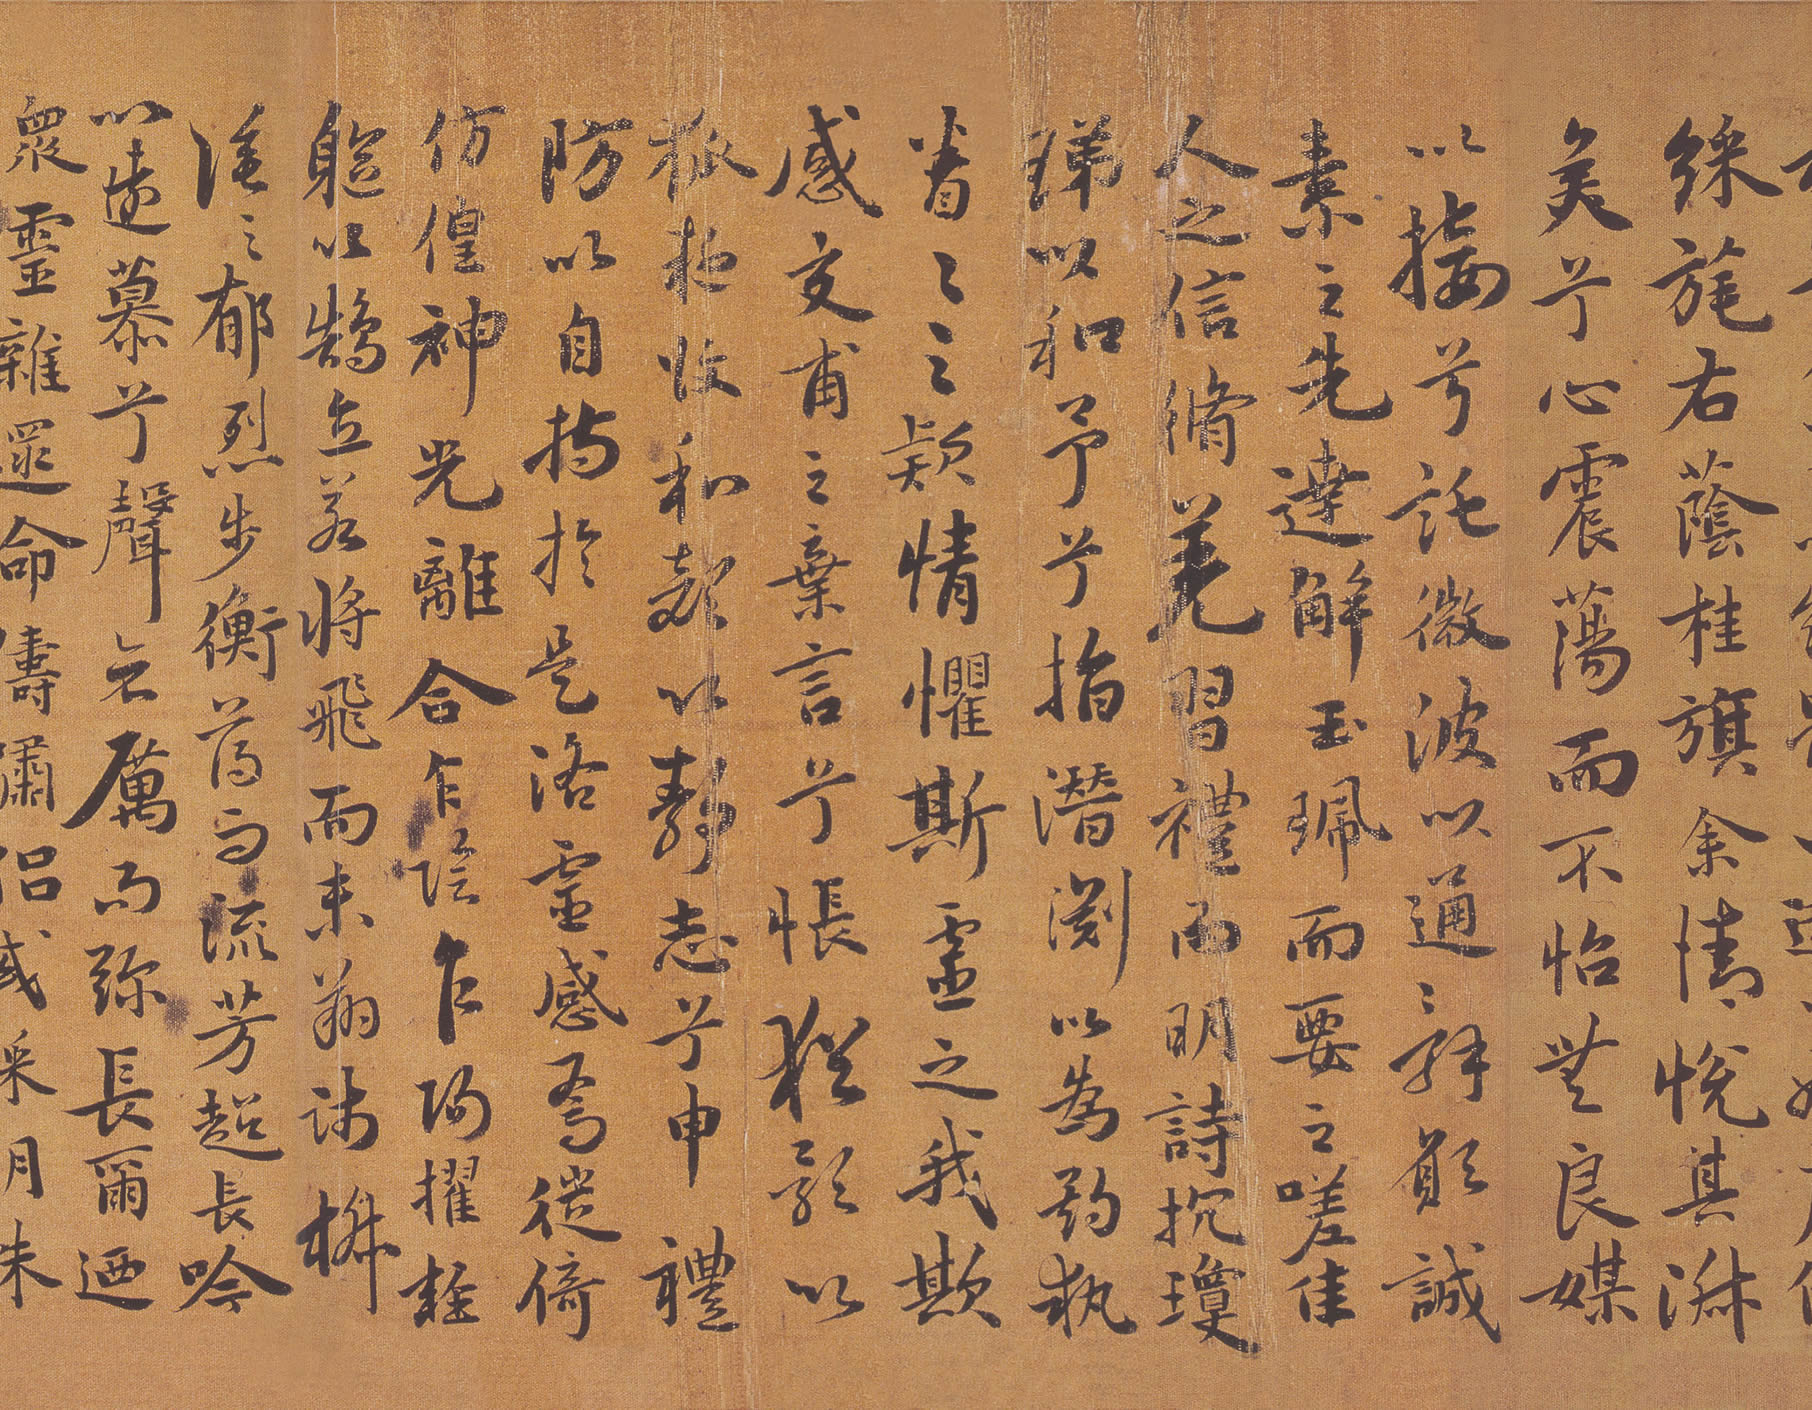 綵旄右蔭桂旗余情悅其淑
美兮心震蕩而不怡無良媒
以接兮託微波以通辭願誠
素之先達解玉珮而要之嗟佳
人之信脩羌習禮而明詩抗瓊
珶以和予兮指潛淵以為期執
眷〻之款情懼斯靈之我欺
感交甫之棄言兮悵猶豫以
狐疑收和顏以靜志兮申禮
防以自持於是洛靈感焉徙倚
仿偟神光離合乍陰乍陽擢輕
軀以鶴立若將飛而未翔踐椒
塗之郁烈步衡薄而流芳超長吟
以遠慕兮聲哀厲而弥長爾迺
眾靈雜遝命儔嘯侶或采明珠